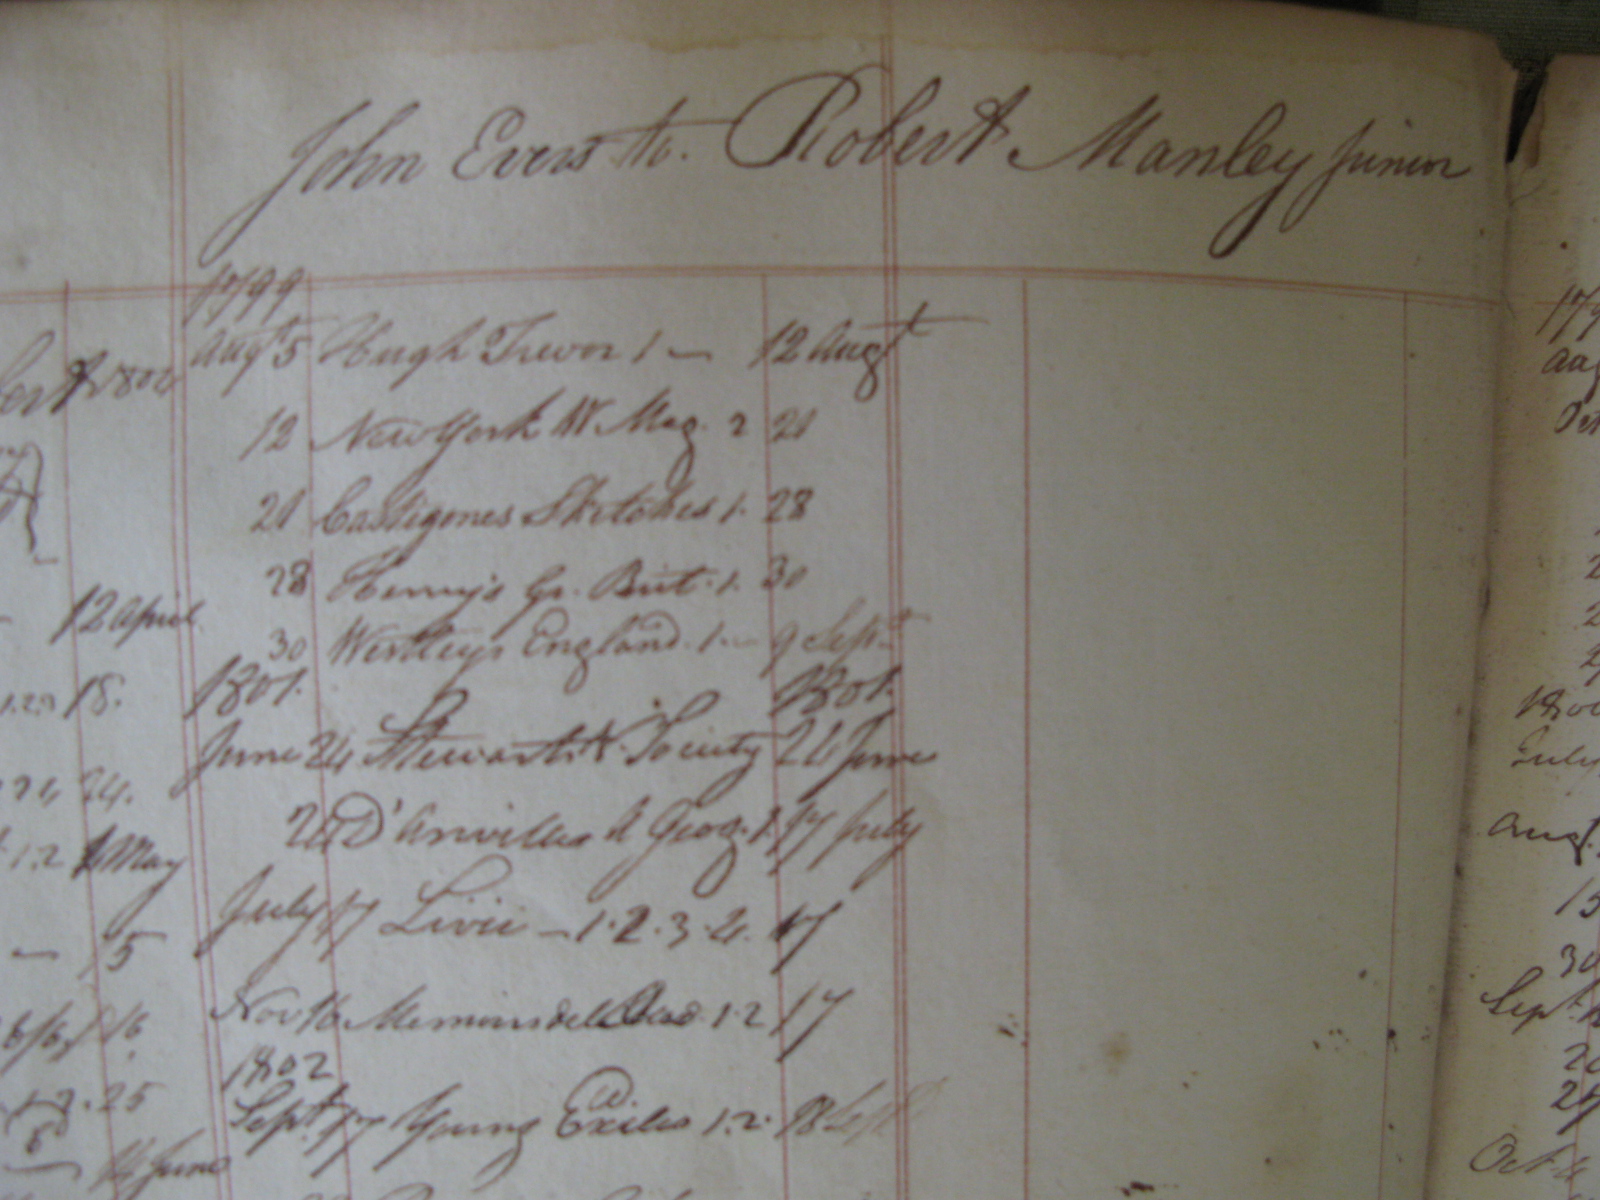 John Evers to. Robert Manley junior
1799
Augt 5 Hugh Trevor 1 — 12 Augt
12 New York M Mag. 2 21
21 Castigones Sketches 1. 28
28 Henry's Gr. Brit. 1. 30
30 England. 1 — 9 Sept
1801. 1801.
June 24 Stewart's Society 24 June
24 D'anvilles A Geog. 1. 17 July
July 17 Livii — 1.2.3.4. 17
Nov 16 1.2 17
1802
Sept. 17 Young Exiles 1.2. 18 Sept
Sept 1800
12 april
1.2.3 18.
24.
1.2 May
— 15
16
25
14 June
179
Aug
Oct
2
2
2
1800
July
Augt.
15
30
Sept.
20
Oct